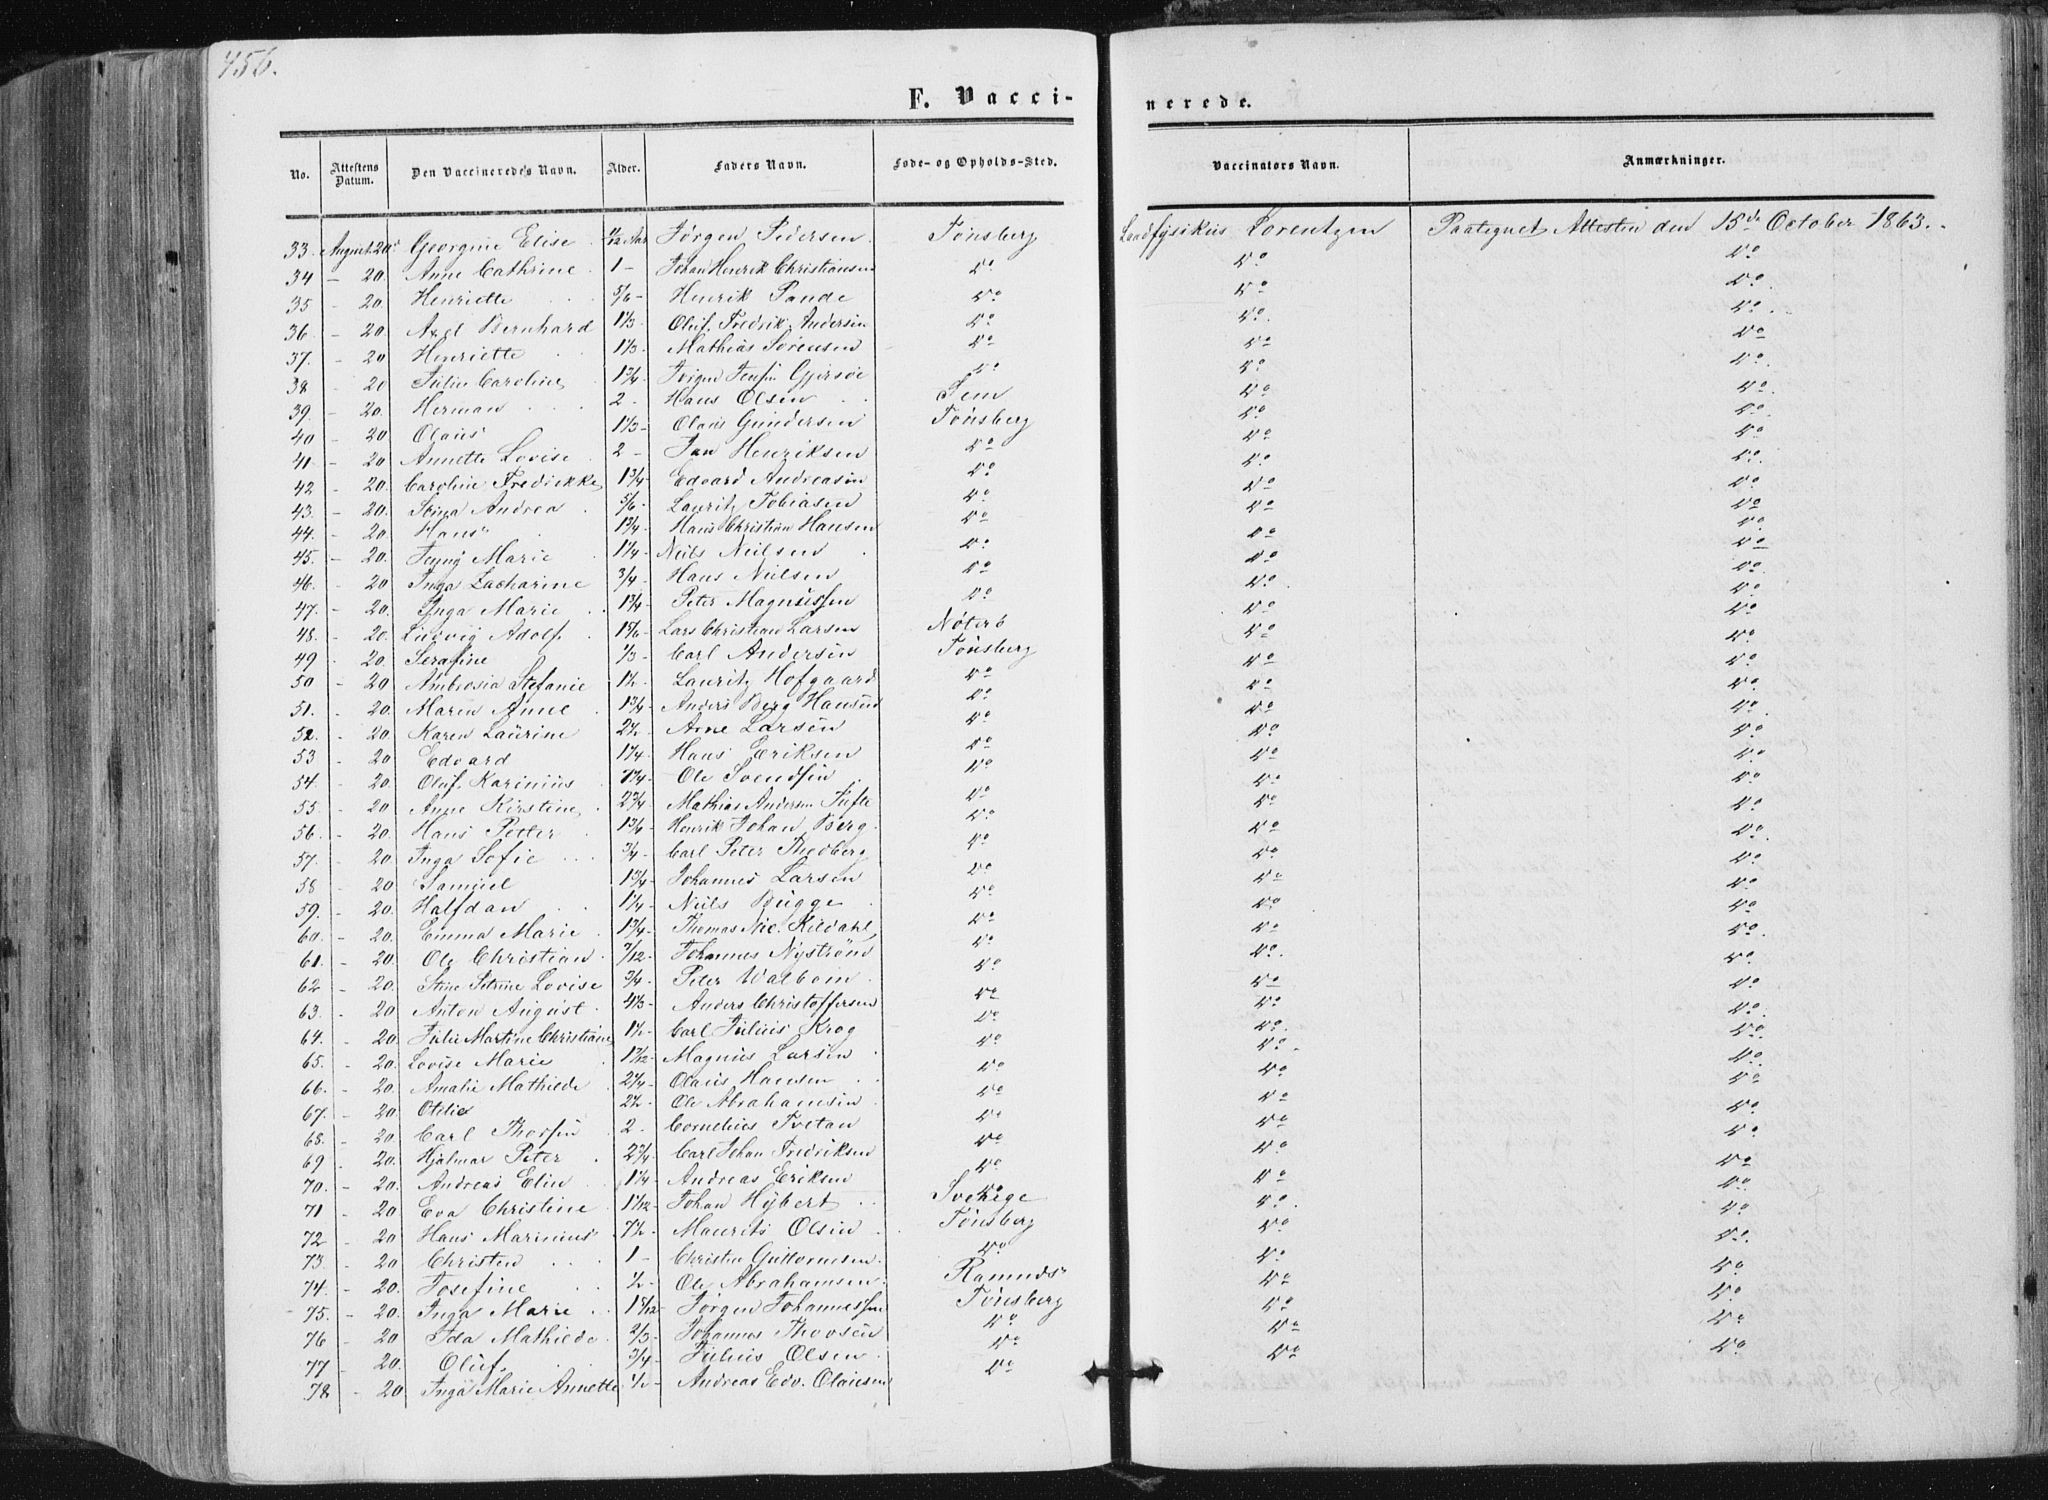 456.
F. Vaccinerede.
No. Attestens Datum. Den Vaccineredes Navn. Alder. Faders Navn. Føde- og Opholds-Sted. Vaccinators Navn. Anmærkninger.
33. August 20. Georgine Elise Aar Jørgen Pedersen Tønsberg Landfysikus Lorentzen Paategnet Attesten den 15de October 1863.
34 - 20. Anne Cathrine 1 - Johan Henrik Christiansen Do Do Do
35 - 20 Henriette 5/6 - Henrik Do Do Do
36. - 20 Axel Bernhard 1 1/3 Oluf Fredrik Andersen Do Do Do
37. - 20 Henriette 1 1/3 - Mathias Sørensen Do Do Do
38 - 20 Julie Caroline 1 3/4 - Jørgen Jensen Do Do Do
39. - 20. Herman 2 - Hans Olsen Sem Do Do
40 - 20 Olaus 1 1/3 - Olaus Gundersen Tønsberg Do Do
41 - 20 Annette Lovise 2 - Jan Henriksen Do Do Do
42 - 20. Caroline Fredrikke 1 3/4 - Edvard Andreasen Do Do Do
43. - 20. Andrea 5/6 - Lauritz Tobiasen Do Do Do
44. - 20. Hans 1 3/4 - Hans Christian Hansen Do Do Do
45. - 20. Marie 1 1/4 - Niels Nielsen Do Do Do
46. - 20 Inga Zacharine 3/4 - Hans Nielsen Do Do Do
47. - 20. Inga Marie 1 3/4 - Peter Magnussen Do Do Do
48. - 20. Ludvig Adolf 1 5/6 - Lars Christian Larsen Nøterö Do Do
49 20. Serafine 1/3 - Carl Andersen Tønsberg Do Do
50 - 20 Ambrosia Stefanie 1 1/2 - Lauritz Hofgaard Do Do Do
51. - 20. Maren Anne 1 3/4 - Anders Berg Hansen Do Do Do
52 - 20. Karen Laurine 2 1/2 - Arne Larsen Do Do Do
53 - 20 Edvard 1 1/4 - Hans Eriksen Do Do Do
54. - 20. Oluf Karinius Ole Svendsen Do Do Do
55. - 20 Anne Kirstine 2 3/4 - Mathias Andersen Tufte Do Do Do
56. - 20. Hans Petter 1 5/6 - Henrik Johan Berg Do Do Do
57. - 20. Inga Sofie 3/4 - Carl Peter Thodberg Do Do Do
58 - 20. Samuel 1 3/4 - Johannes Larsen Do Do Do
59. - 20. Halfdan 1 1/4 - Niels Bugge Do Do Do
60. - 20. Emma Marie 1 3/4 - Thomas Nic. Kildahl Do Do Do
61. - 20. Ole Christian 7/12 - Johannes Nyström Do Do Do
62 - 20. Stine Petrine Lovise 3/4 - Peter Walbom Do Do Do
63. - 20 Anton August 4 1/3 - Anders Christoffersen Do Do Do
64. - 20. Julie Martine Christiane 1 1/2 - Carl Julius Krog Do Do Do
65. - 20. Lovise Marie Magnus Larsen Do Do Do
66. - 20 Amalie Mathilde 2 1/4 - Olaus Hansen Do Do Do
67. - 20 Otilie 2 1/2 - Ole Abrahamsen Do Do Do
68. - 20. Carl 2 - Cornelius Tvetan Do Do Do
69 - 20. Hjalmar Peter 2 3/4 - Carl Johan Fredriksen Do Do Do
70. - 20. Andreas Elin 1 1/4 - Andreas Eriksen Do Do Do
71 - 20 Eva Christine Johan Hybert Sverige Do Do
72 - 20 Hans Marinius 7 1/2 - Maurits Olsen Tønsberg Do Do
73. - 20 Christen 1 - Christen Guttormsen Do Do Do
74. - 20. Josefine 1/2 - Ole Abrahamsen Ramnæs Do Do
75. - 20. Inga Marie Jørgen Johannessen Tønsberg Do Do
76 - 20 Ida Mathilde 2/3 - Johannes Do Do Do
77 - 20. Oluf 3/4 - Julius Olsen Do Do Do
78 - 20. Inga Marie Annette 1/2 - Andreas Edv. Olausen Do Do Do